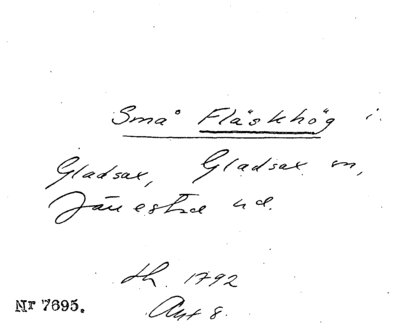 Små Fläskhög i
Gladsax, Gladsax sn,
Järrestad hd.
sh. 1792
Akt 8.
Nr 7695.